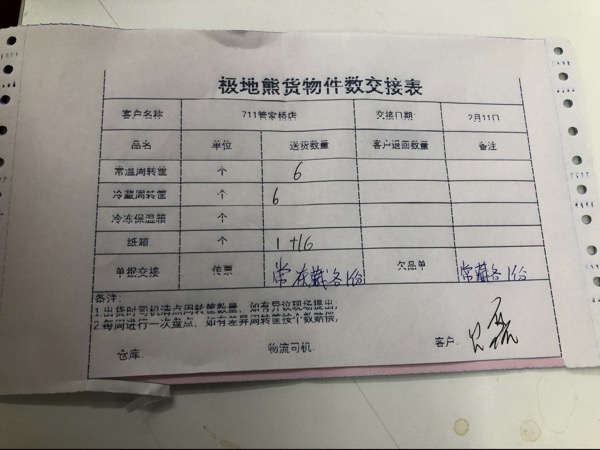 极地熊货物件数交接表
客户名称 711管家桥店 交接日期 2月11日
品名 单位 送货数量 客户退回数量 备注
常温周转筐 个 6
冷藏周转筐 个 6
冷冻保温箱 个
纸箱 个 1+16
单据交接 传票 常 藏各1份 欠品单 常藏各1份
备注:
1.出货时司机清点周转筐数量，如有异议现场提出;
2.每周进行一次盘点，如有差异周转筐按个数赔偿;
仓库: 物流司机: 客户: